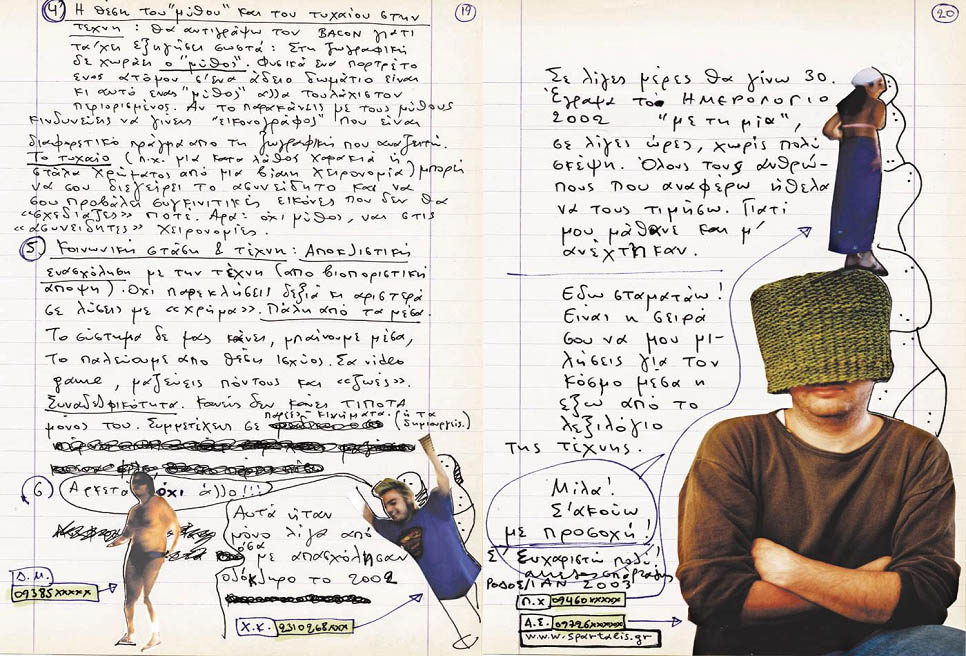 19
4) Η θέση του "μύθου" και του τυχαίου στην
τέχνη: Θα αντιγράψω τον BACON γιατί
τα'χει εξηγήσει σωστά: Στη ζωγραφική
δε χωράει ο "μύθος". Φυσικά ένα πορτρέτο
ενός ατόμου σ'ένα άδειο δωμάτιο είναι
κι αυτό ένας "μύθος" αλλά τουλάχιστον
περιορισμένος. Αν το παρακάνεις με τους μύθους
κινδυνεύεις να γίνεις "εικονογράφος" που είναι
διαφορετικό πράγμα από τη ζωγραφική που αναζητώ.
Το τυχαίο (π.χ. μία κατά λάθος χαρακιά ή
στάλα χρώματος από μια βίαιη χειρονομία) μπορεί
να σου διεγείρει το ασυνείδητο και να
σου προβάλει συγκινητικές εικόνες που δεν θα
«σχεδίαζες» ποτέ. Άρα: όχι μύθος, ναι στις
«ασυνείδητες» χειρονομίες.
5. Κοινωνική στάση & τέχνη: Αποκλειστική
ενασχόληση με την τέχνη (από βιοποριστική
άποψη). Όχι παρεκκλήσεις δεξιά κι αριστερά
σε λύσεις με «χρήμα». Πάλη από τα μέσα.
Το σύστημα δε μας κάνει, μπαίνουμε μέσα,
το παλεύουμε από θέση ισχύος. Σα video
game, μαζεύεις πόντους και «ζωές».
Συναδελφικότητα. Κανείς δεν κάνει ΤΙΠΟΤΑ
μόνος του. Συμμετέχεις σε παρέες, κινήματα. (ή τα δημιουργείς.)
6) Αρκετά όχι άλλο!!!
Αυτά ήταν
μόνο λίγα από
όσα με απασχόλησαν
ολόκληρο το 2002
Δ.Μ.
09385xxxxx
Χ.Κ. 2310268xxx
20
Σε λίγες μέρες θα γίνω 30.
Έγραψα το ΗΜΕΡΟΛΟΓΙΟ
2002 "με τη μία",
σε λίγες ώρες, χωρίς πολύ
σκέψη. Όλους τους ανθρώ-
πους που αναφέρω ήθελα
να τους τιμήσω. Γιατί
μου μάθανε και μ'
ανέχτηκαν.
Εδώ σταματάω!
Είναι η σειρά
σου να μου μι-
λήσεις για τον
κόσμο μέσα κ
έξω από το
λεξιλόγιο
της τέχνης.
Μίλα!
Σ'ακούω
με προσοχή!
Σ' ευχαριστώ πολύ!
ΡΟΔΟΣ/ΙΑΝ 2003
Π.Χ 09460xxxxx
Δ.Σ. 09726xxxxx
www.spartalis.gr